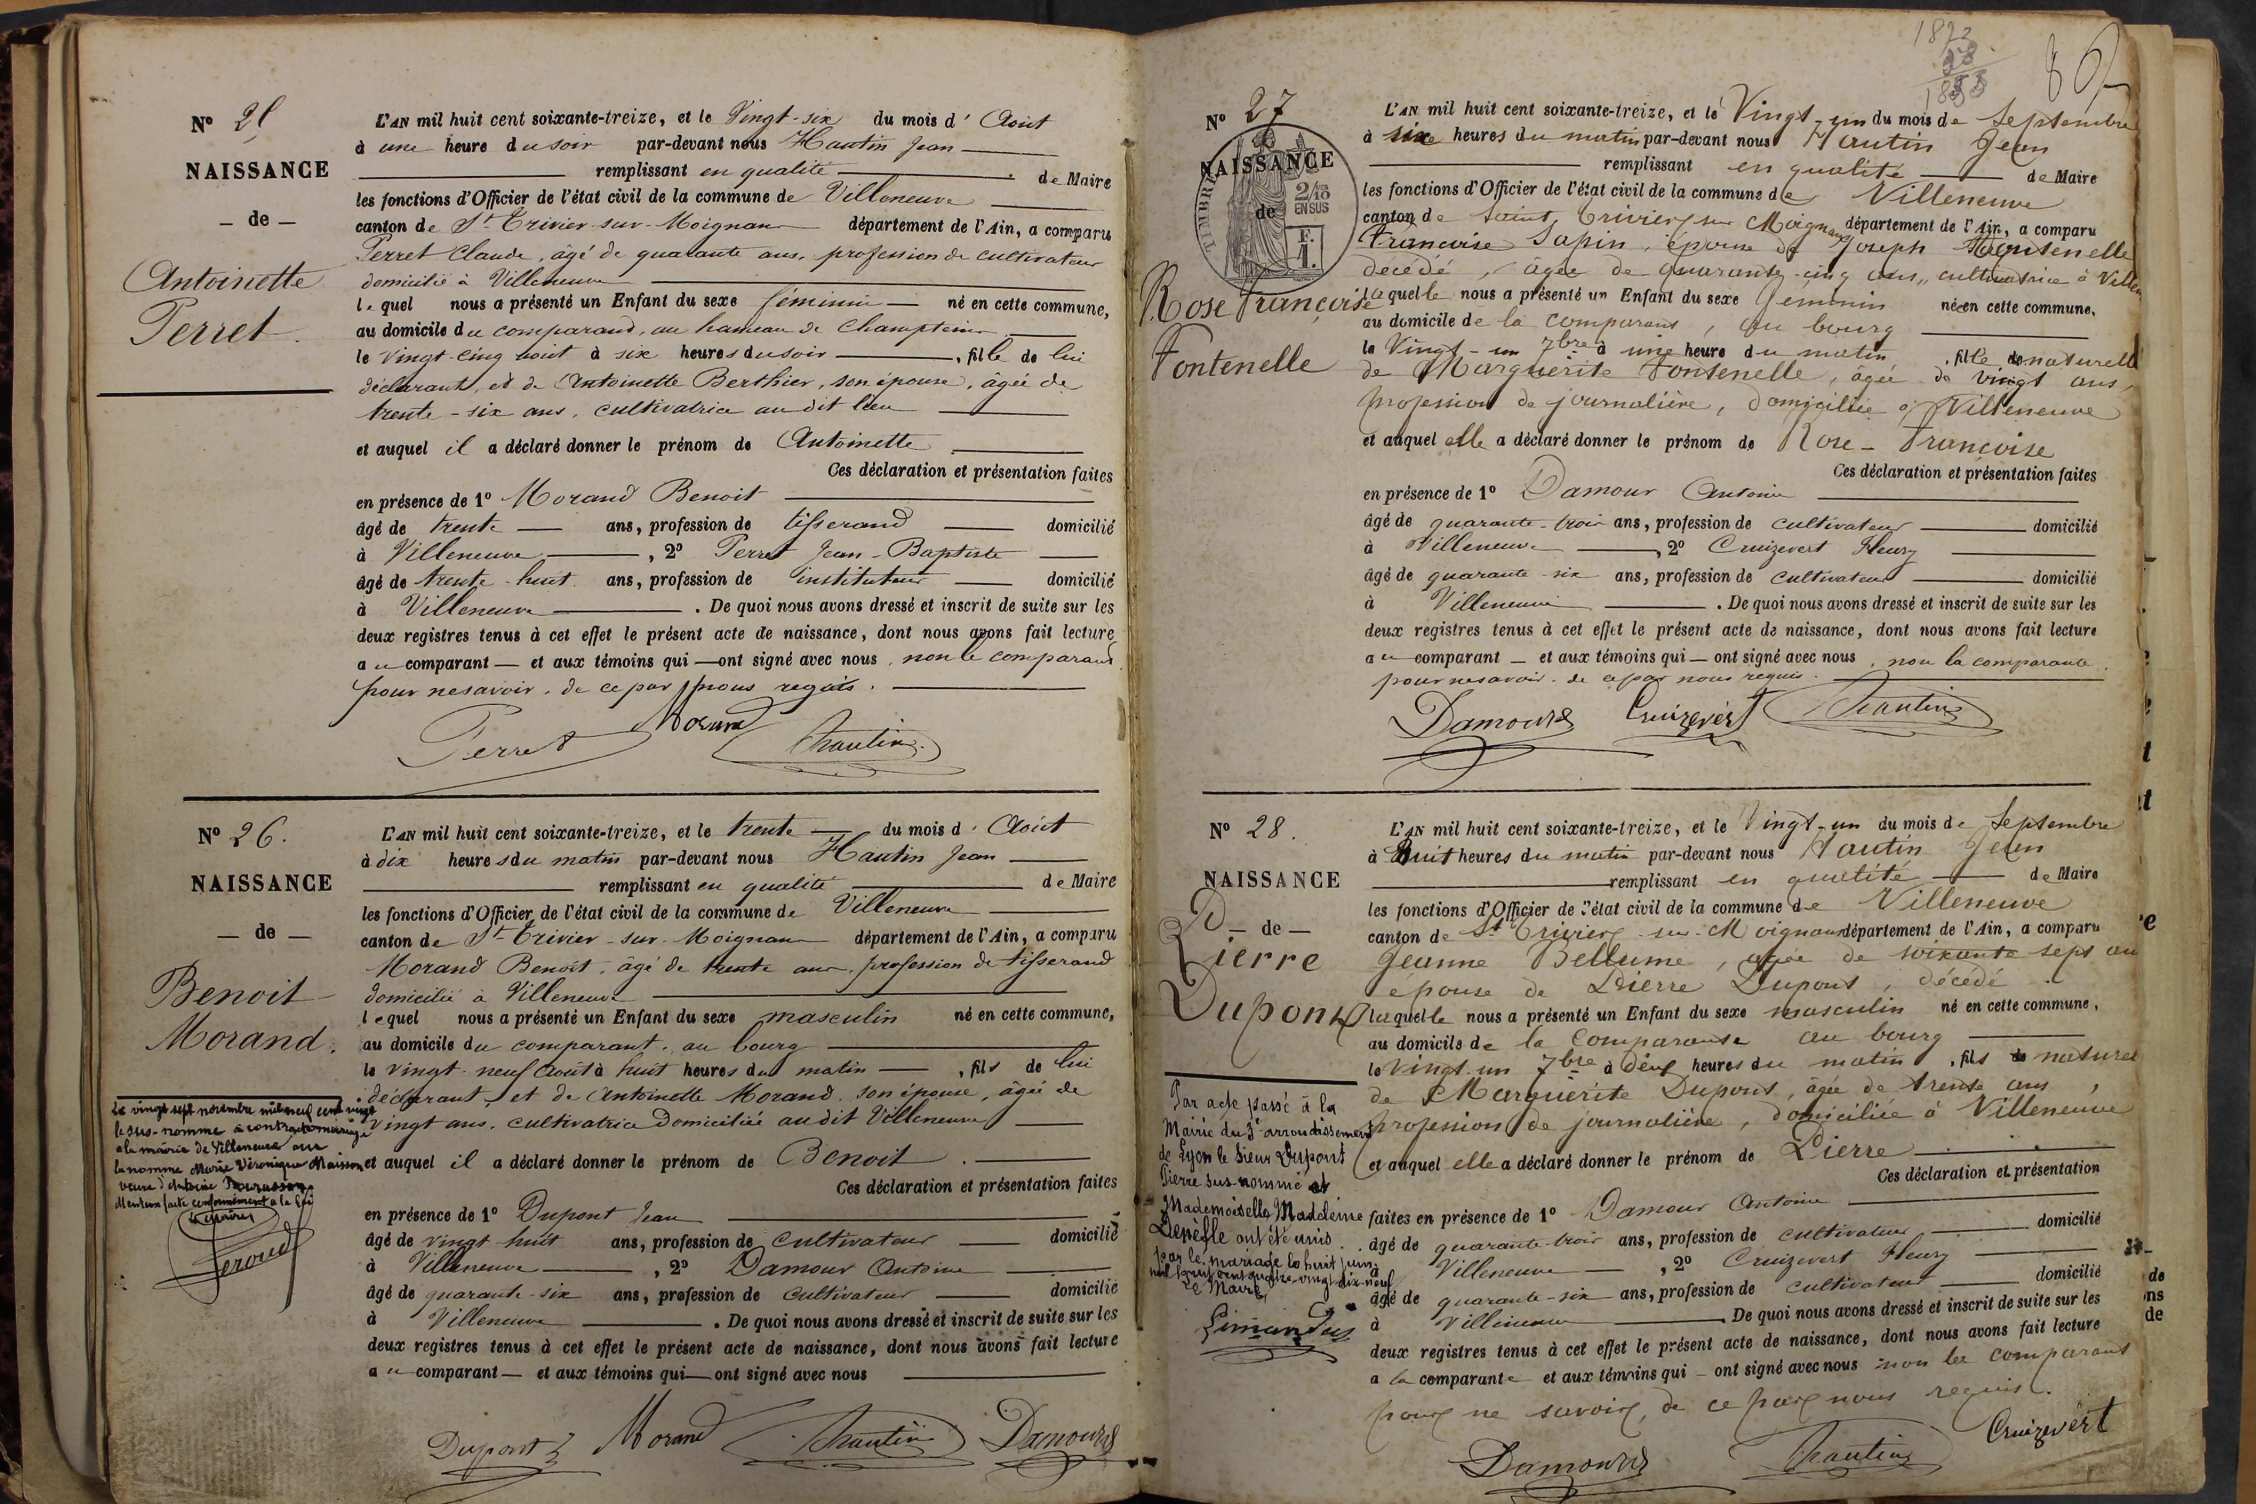 N° 25
NAISSANCE
— de —
Antoinette
Perret.
L'AN mil huit cent soixante-treize, et le Vingt-six du mois d' Août
à une heure du soir par-devant nous Hautin Jean
remplissant en qualité de Maire
les fonctions d'Officier de l'état civil de la commune de Villeneuve
canton de St Trivier-sur-Moignans département de l'Ain, a comparu
Perret Claude, âgé de quarante ans, profession de cultivateur
domicilié à Villeneuve
lequel nous a présenté un Enfant du sexe féminin né en cette commune,
au domicile du comparand, au hameau de
le vingt-cinq août à six heures du soir, fille de lui
déclarant, et de Antoinette Berthier, son épouse, âgée de
trente-six ans, cultivatrice au dit lieu
et auquel il a déclaré donner le prénom de Antoinette
Ces déclaration et présentation faites
en présence de 1° Morand Benoit
âgé de trente ans, profession de tisserand domicilié
à Villeneuve, 2° Perret Jean-Baptiste
âgé de trente-huit ans, profession de instituteur domicilié
à Villeneuve. De quoi nous avons dressé et inscrit de suite sur les
deux registres tenus à cet effet le présent acte de naissance, dont nous avons fait lecture
au comparant — et aux témoins qui — ont signé avec nous, non le comparant
pour ne savoir, de ce par nous requis.
Perret Morand Hautin
N° 26.
NAISSANCE
— de —
Benoit
Morand.
Le vingt sept novembre mil neuf cent vingt
le sus-nommé a contracté mariage
à la mairie de Villeneuve avec
la nommé Marie Véronique Maisson
veuve d'Antoine
Mention faite conformément à la loi
Le Maire
L'AN mil huit cent soixante-treize, et le trente du mois d' Août
à dix heures du matin par-devant nous Hautin Jean
remplissant en qualité de Maire
les fonctions d'Officier de l'état civil de la commune de Villeneuve
canton de St Trivier-sur-Moignans département de l'Ain, a comparu
Morand Benoit, âgé de trente ans, profession de tisserand
domicilié à Villeneuve
lequel nous a présenté un Enfant du sexe masculin né en cette commune,
au domicile du comparant, au bourg
le vingt-neuf Août à huit heures du matin, fils de lui
déclarant, et de Antoinette Morand, son épouse, âgée de
vingt ans, cultivatrice domiciliée au dit Villeneuve
et auquel il a déclaré donner le prénom de Benoit.
Ces déclaration et présentation faites
en présence de 1° Dupont Jean
âgé de vingt huit ans, profession de cultivateur domicilié
à Villeneuve, 2° Damour Antoine
âgé de quarante-six ans, profession de cultivateur domicilié
à Villeneuve. De quoi nous avons dressé et inscrit de suite sur les
deux registres tenus à cet effet le présent acte de naissance, dont nous avons fait lecture
au comparant — et aux témoins qui — ont signé avec nous
Dupont Morand Hautin Damour
N° 27
NAISSANCE
de
TIMBRE
2/10 EN SUS
F. 1.
Rose Françoise
Fontenelle
L'AN mil huit cent soixante-treize, et le Vingt-un du mois de Septembre
à six heures du matin par-devant nous Hautin Jean
remplissant en qualité de Maire
les fonctions d'Officier de l'état civil de la commune de Villeneuve
canton de Saint Trivier sur Moignans département de l'Ain, a comparu
Françoise Sapin, épouse de Joseph Fontenelle
décédé, âgée de quarante-cinq ans, cultivatrice à Villen
laquelle nous a présenté un Enfant du sexe féminin née en cette commune,
au domicile de la comparant, au bourg
le Vingt-un 7bre à une heure du matin, fille naturelle
de Marguerite Fontenelle, âgée de vingt ans,
profession de journalière, domiciliée à Villeneuve
et auquel elle a déclaré donner le prénom de Rose-Françoise
Ces déclaration et présentation faites
en présence de 1° Damour Antoine
âgé de quarante-trois ans, profession de cultivateur domicilié
à Villeneuve, 2° Cruizevert Fleury
âgé de quarante-six ans, profession de cultivateur domicilié
à Villeneuve. De quoi nous avons dressé et inscrit de suite sur les
deux registres tenus à cet effet le présent acte de naissance, dont nous avons fait lecture
au comparant — et aux témoins qui — ont signé avec nous, non la comparante
pour ne savoir, de ce par nous requis.
Damour Cruizevert Hautin
N° 28.
NAISSANCE
— de —
Pierre
Dupont
Par acte passé à la
Mairie du 3e arrondissement
de Lyon le Sieur Dupont
Pierre sus-nommé et
Mademoiselle Madeleine
ont été unis
par le mariage le huit juin
mil huit cent quatre-vingt-dix-neuf
Le Maire
L'AN mil huit cent soixante-treize, et le Vingt-un du mois de Septembre
à Huit heures du matin par-devant nous Hautin Jean
remplissant en qualité de Maire
les fonctions d'Officier de l'état civil de la commune de Villeneuve
canton de St Trivier-sur-Moignans département de l'Ain, a comparu
Jeanne Bellume, âgée de soixante sept an
épouse de Pierre Dupont, décédé
laquelle nous a présenté un Enfant du sexe masculin né en cette commune,
au domicile de la Comparante au bourg
le Vingt un 7bre à deux heures du matin, fils naturel
de Marguerite Dupont, âgée de trente ans,
profession de journalière, domiciliée à Villeneuve
et auquel elle a déclaré donner le prénom de Pierre
Ces déclaration et présentation
faites en présence de 1° Damour Antoine
âgé de quarante-trois ans, profession de cultivateur domicilié
à Villeneuve, 2° Cruizevert Fleury
âgé de quarante-six ans, profession de cultivateur domicilié
à Villeneuve. De quoi nous avons dressé et inscrit de suite sur les
deux registres tenus à cet effet le présent acte de naissance, dont nous avons fait lecture
a la comparante et aux témoins qui — ont signé avec nous non la comparant
pour ne savoir, de ce par nous requis.
Damour Hautin Cruizevert